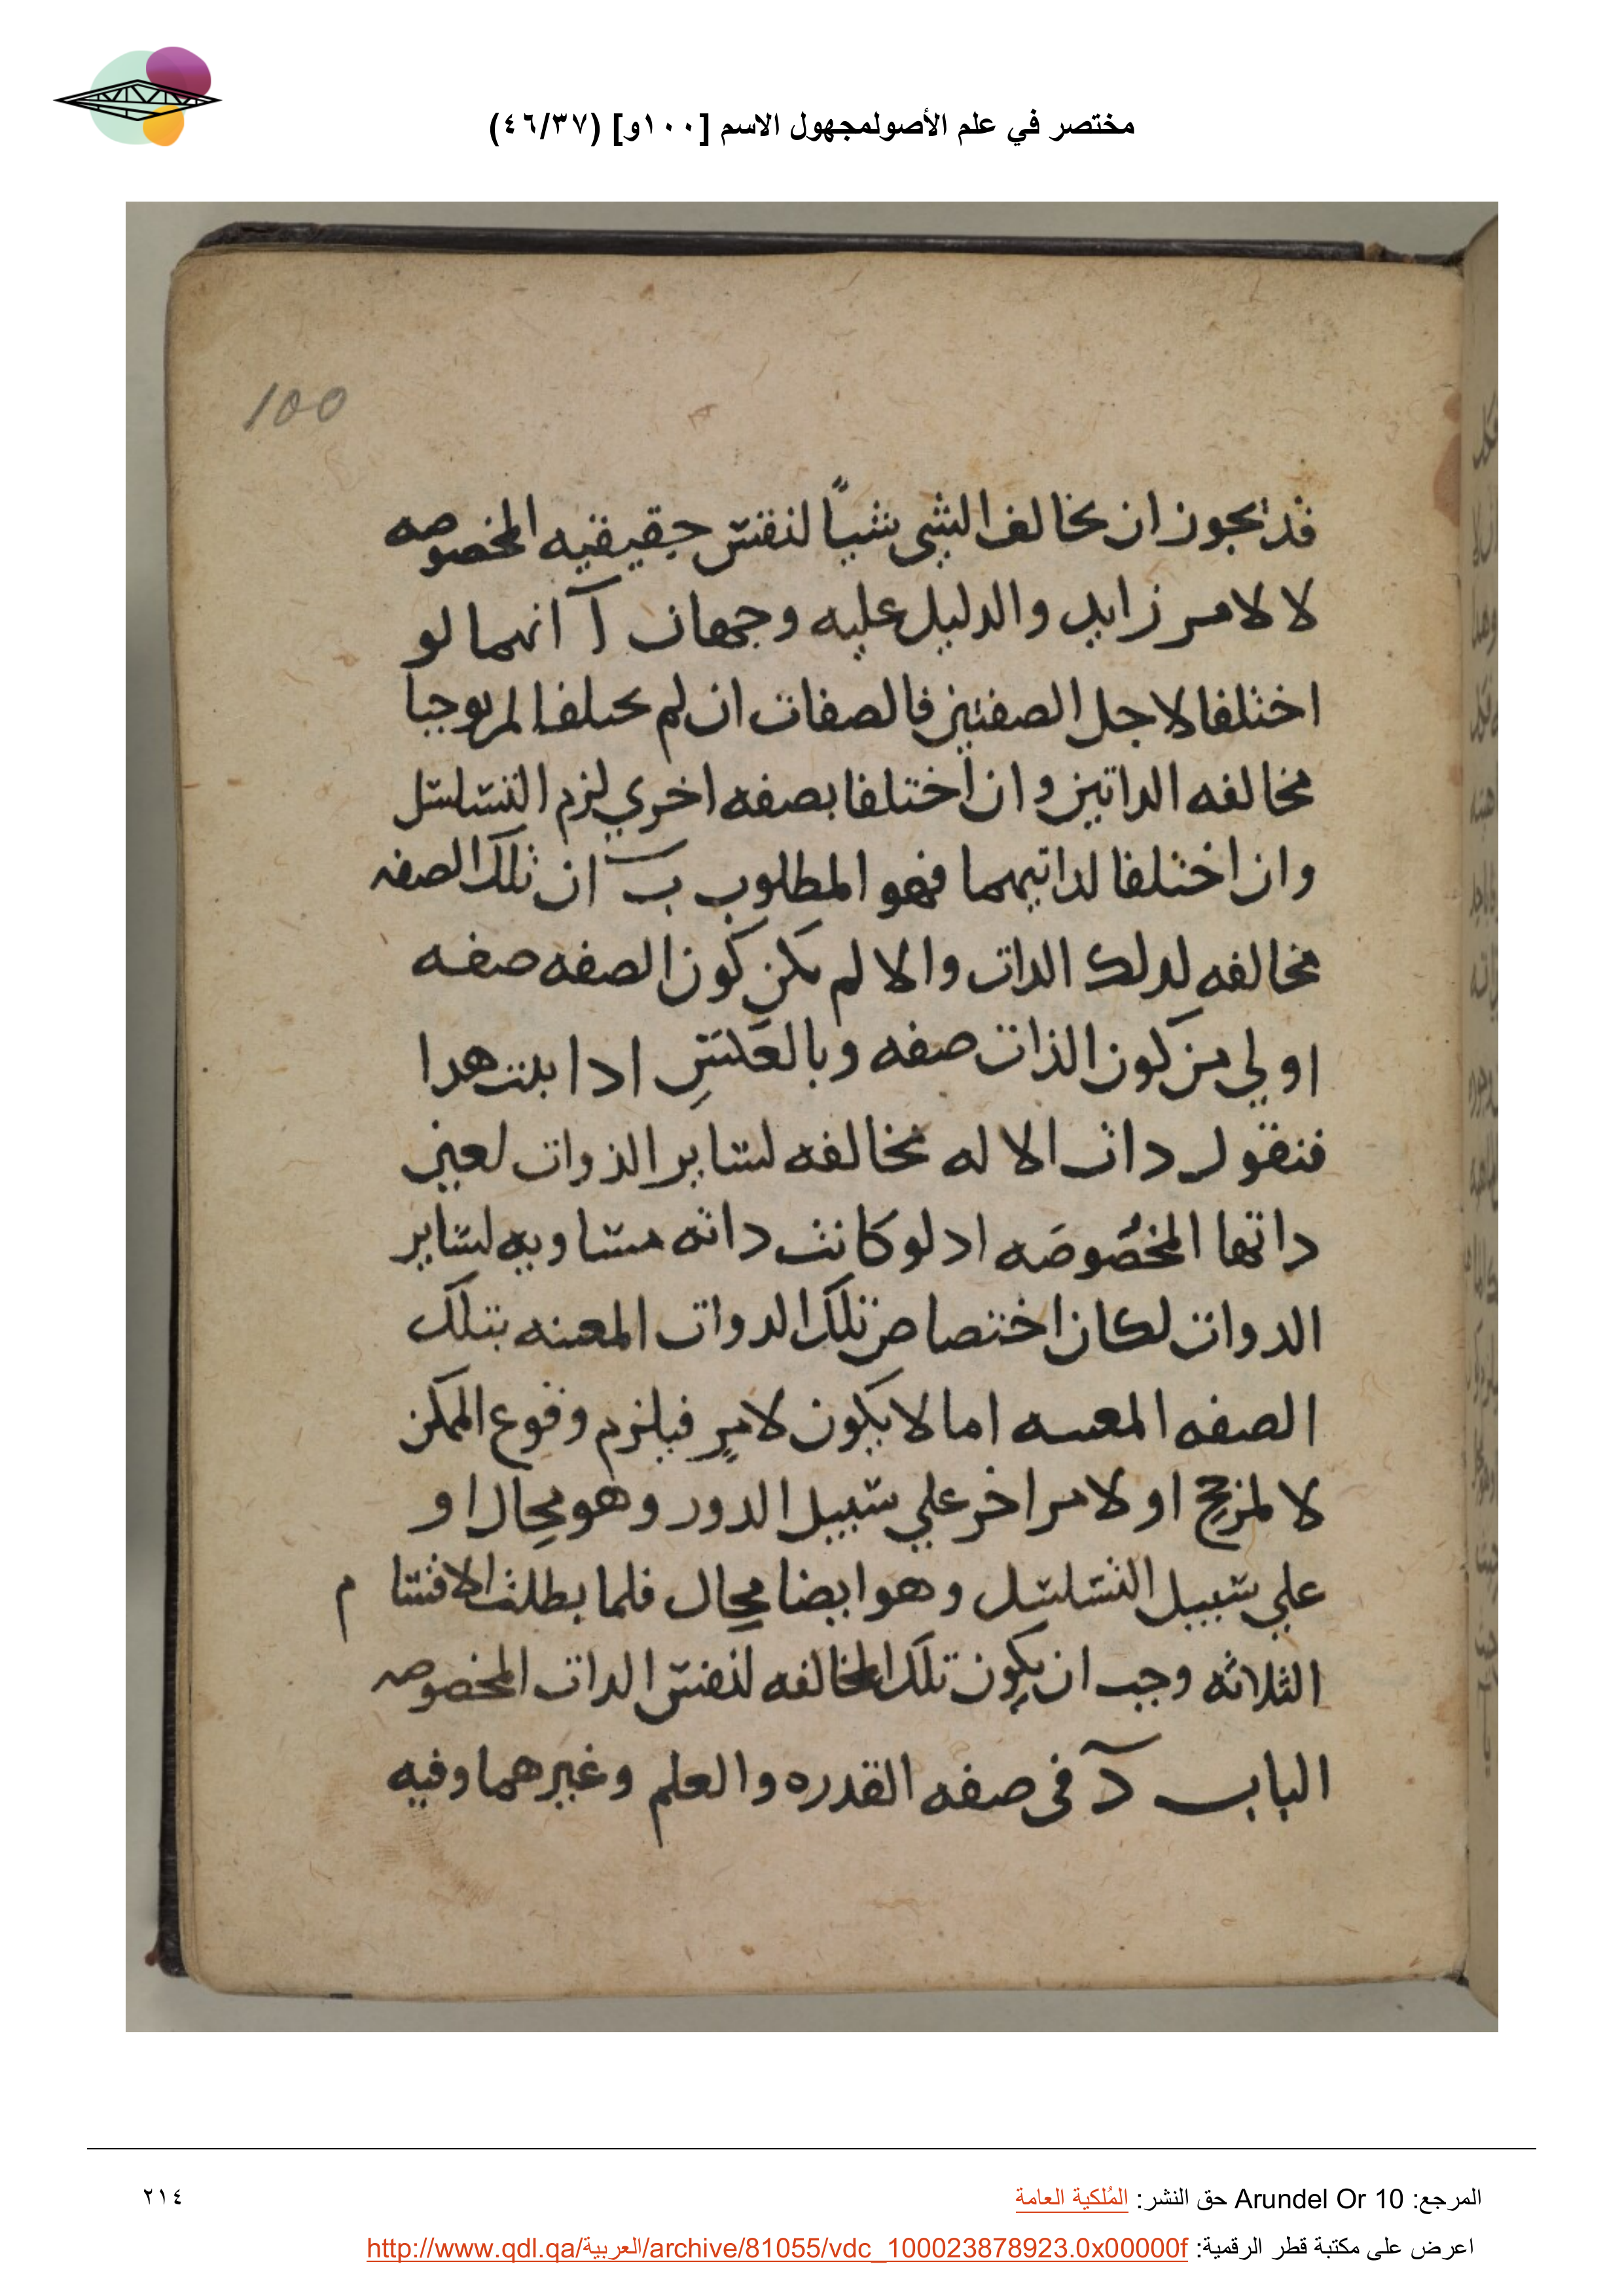 مختصر في علم الأصولمجهول الاسم [١٠٠و] (٤٦/٣٧)
100
قد يجوز ان يخالف الشي شيًا لنفس حقيقيه المخصوصه
لا لامر زايد والدليل عليه وجهان آ انهما لو
اختلفا لاجل الصفتين فالصفات ان لم يختلفا لم يوجبا
مخالفه الداتين وان اختلفا بصفه اخري لزم التسلسل
وان اختلفا لداتيهما فهو المطلوب ب ان تلك الصفه
مخالفه لدلك الدات والا لم يكن كون الصفه صفه
اولي من كون الذات صفه وبالعكس ادا ثبت هدا
فنقول دات الاله مخالفه لساير الذوات لعين
داتها المخصوصه اد لو كانت داته مساويه لساير
الدوات لكان اختصاص تلك الدوات المعينه بتلك
الصفه المعينه اما لا يكون لامر فيلزم وقوع الممكن
لا لمرجح او لامر اخر علي سبيل الدور وهو محال او
علي سبيل التسلسل وهو ايضا محال فلما بطلت الاقسام
الثلاثه وجب ان يكون تلك المخالفه لنفس الدات المخصوصه
الباب د في صفه القدره والعلم وغيرهما وفيه
المرجع: Arundel Or 10 حق النشر: المُلكية العامة
٢١٤
اعرض على مكتبة قطر الرقمية: http://www.qdl.qa/العربية/archive/81055/vdc_100023878923.0x00000f